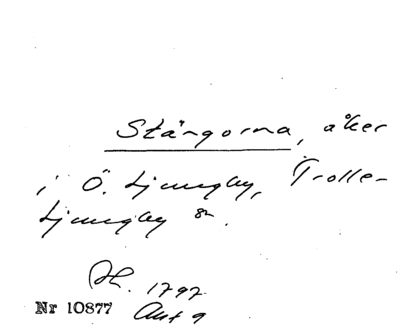 Stängorna, åker
i Ö. Ljungby, Trolle-
Ljungby sn.
1797
Nr 10877 Akt 9